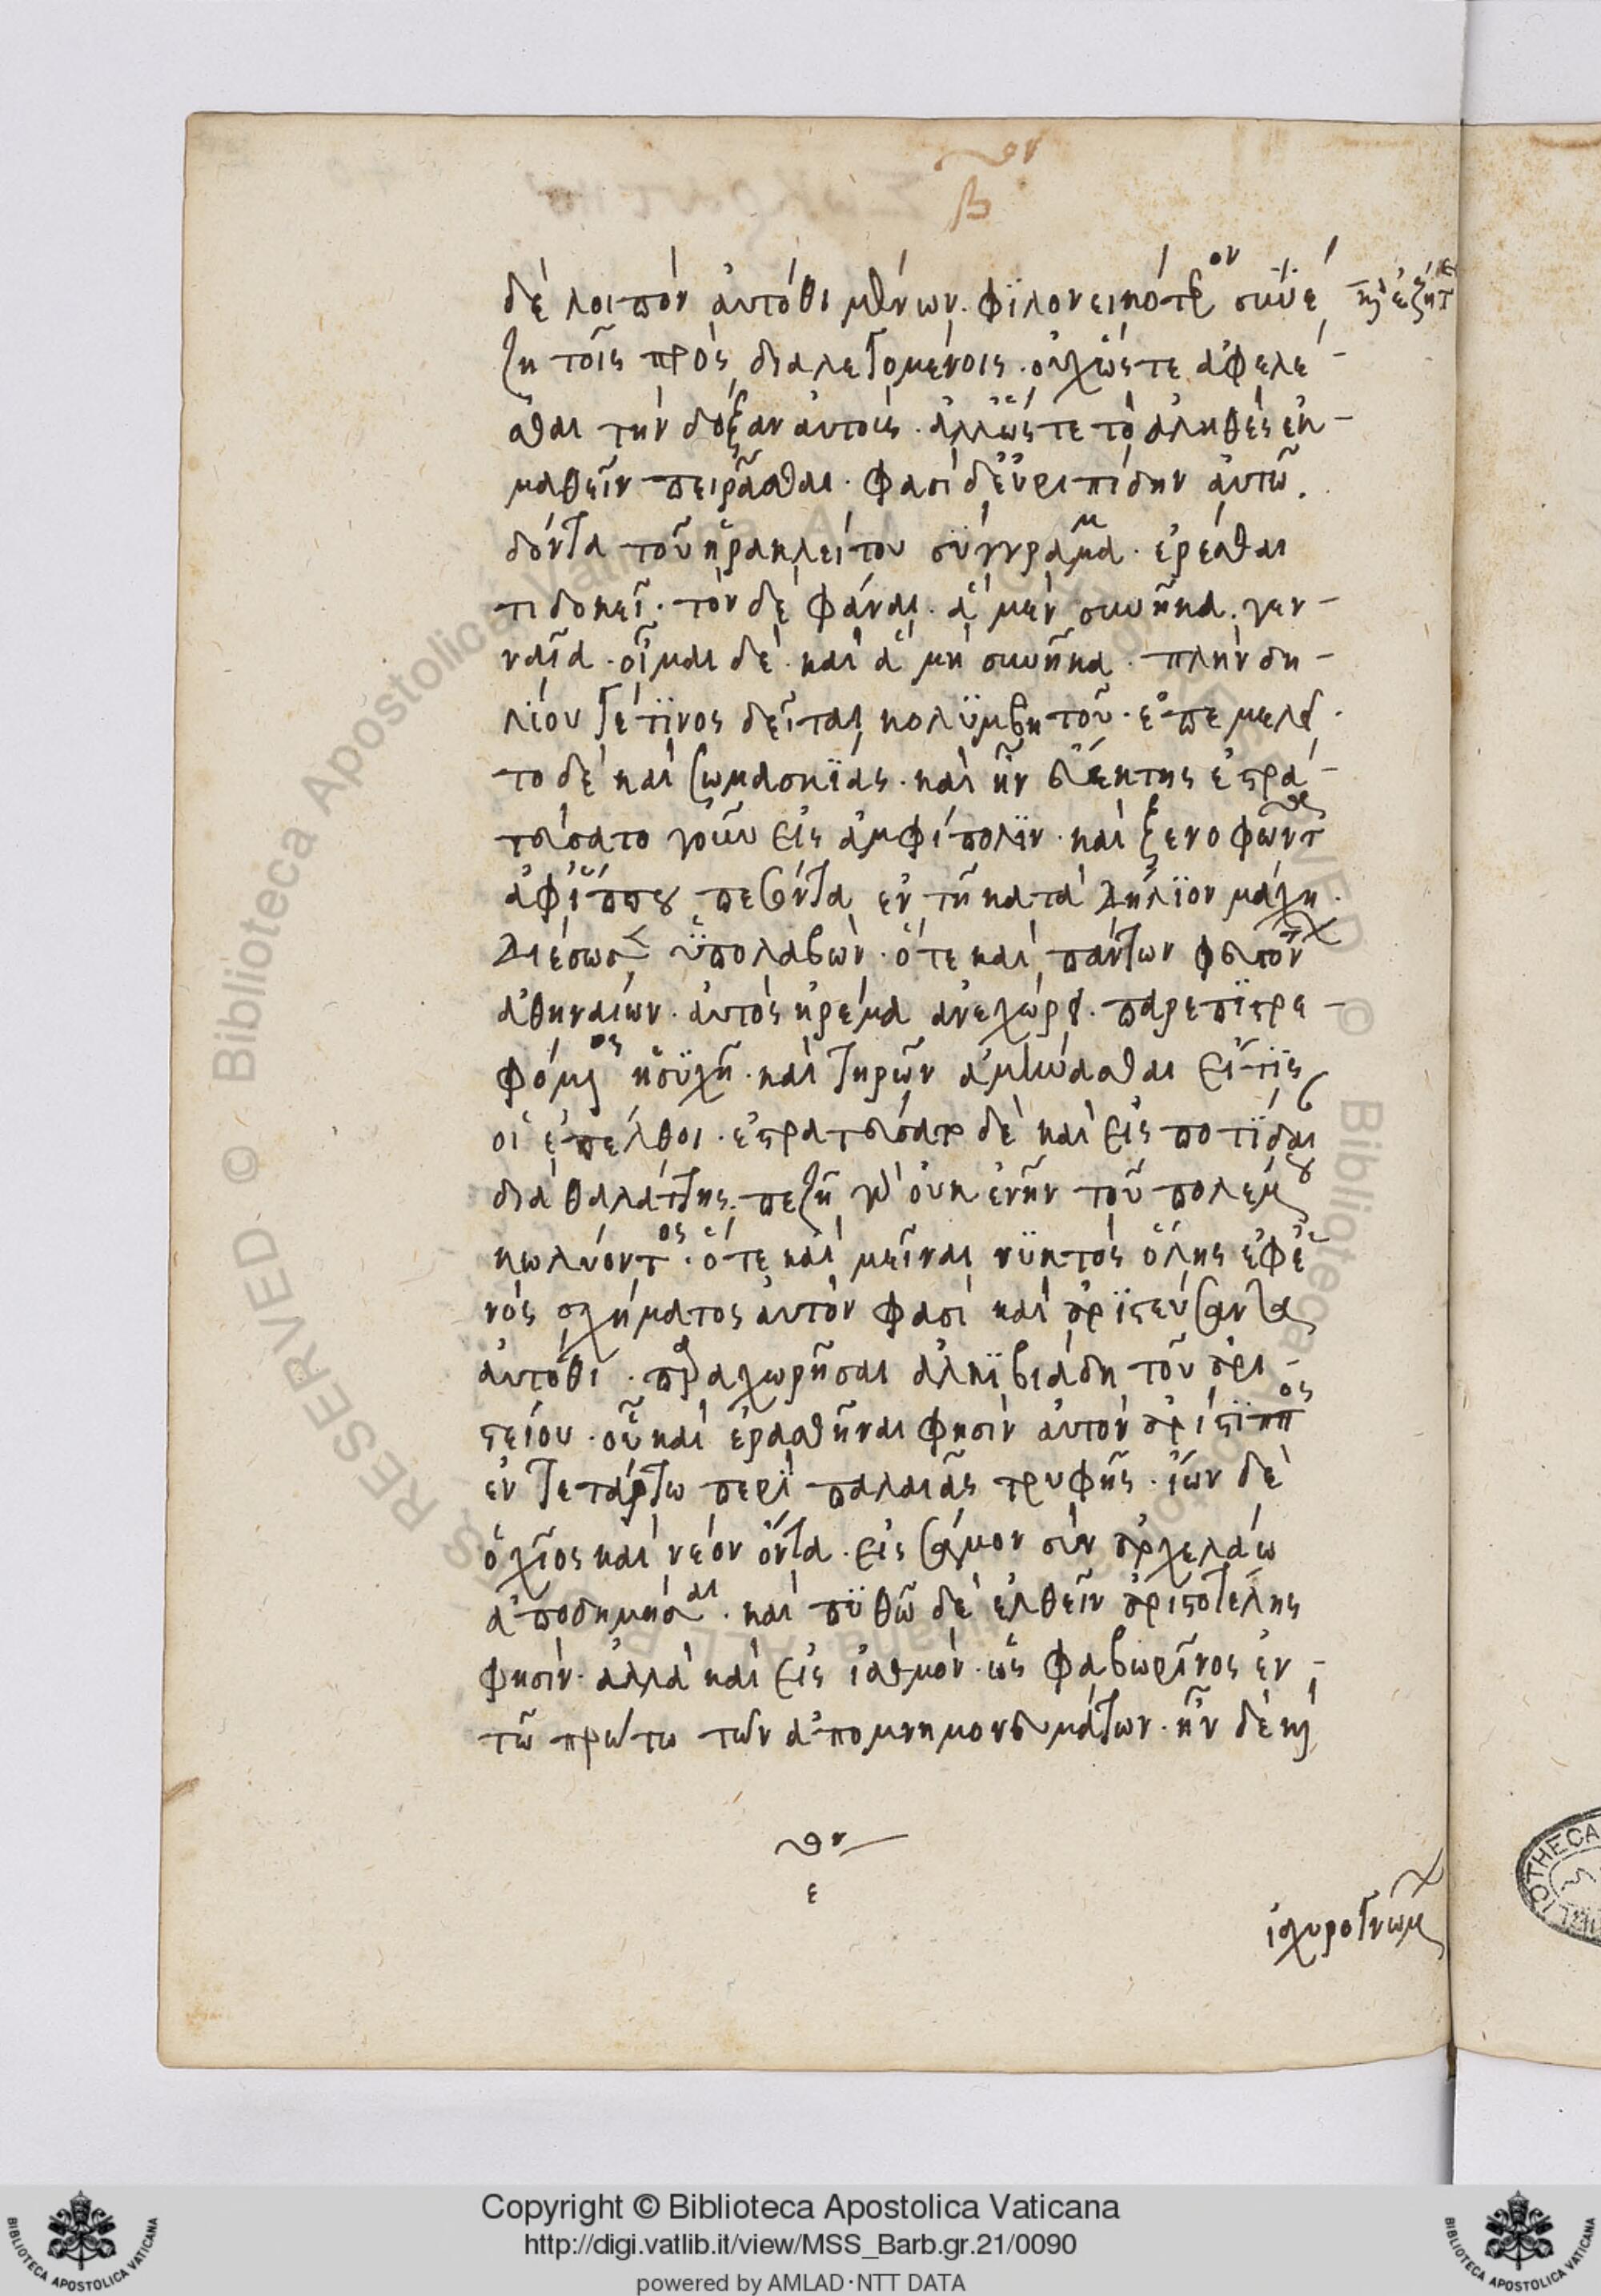 β
δὲ λοιπὸν αὐτόθι μένων. φϊλονεικότερον συνε
ζή τοῖς προς διαλεγομένοις. οὐχ ὥστε ἀφελέ-
σθαι τὴν δόξαν αὐτοις. ἀλλ' ὥστε τὸ ἀληθὲς ἐκ-
μαθεῖν πειρᾶσθαι. φασὶ δ' εὐριπίδην αὐτῶ.
δόντα τοῦ ἡρακλείτου σύγγραμμα. ἐρέσθαι
τι δοκεῖ. τὸν δὲ φάναι. ἃ μὲν συνῆκα. γεν-
ναῖα. οἶμαι δὲ. καὶ ἃ μὴ συνῆκα. πλὴν δη-
λίου γέ τϊνος δεῖται κολϋμβητοῦ. ἐπεμελεῖ.
το δὲ καὶ σωμασκΐας. καὶ ἦν εὐέκτης ἐστρα-
τεύσατο γοῦν εἰς ἀμφίπολϊν. καὶ ξενοφῶντα
ἀφ' ἵππου πεσόντα ἐν τῆ κατὰ Δήλϊον μάχη.
Διέσωσεν ὑπολαβών. ὅτε καὶ πάντων φευγόντων
ἀθηναίων. αὐτὸς ἠρέμα ἀνεχώρει. παρεπϊστρε-
φόμενος ἡσϋχῆ. καὶ τηρῶν ἀμύνασθαι εἴ τϊς
οἱ ἐπέλθοι. ἐστρατεύσατο δὲ καὶ εἰς ποτΐδαιαν
διὰ θαλάττης. πεζῆ γὰρ οὐκ ἐνῆν τοῦ πολέμου
κωλύοντος. ὅτε καὶ μεῖναι νϋκτὸς ὅλης ἐφ' ἑ-
νὸς σχήματος αὐτόν φασὶ καὶ ἀρϊστεύσαντα
αὐτόθι. παραχωρῆσαι ἀλκϊβιάδη τοῦ ἀρι-
στείου. οὗ καὶ ἐρασθῆναι φησὶν αὐτὸν ἀρίστϊππος
ἐν τετάρτω περὶ παλαιᾶς τρυφῆς. ἴων δὲ
ὁ χῖος καὶ νέον ὄντα. εἰς σάμον σὺν ἀρχελάω
ἀποδημῆσαι. καὶ πϋθῶ δὲ ἐλθεῖν ἀριστοτέλης
φησὶν. ἀλλὰ καὶ εἰς ἰσθμὸν. ὡς φαβωρῖνος ἐν-
τῶ πρώτω τῶν ἀπομνημονευμάτων. ἦν δὲ καὶ
ε
ἰσχυρογνώμων
Copyright © Biblioteca Apostolica Vaticana
http://digi.vatlib.it/view/MSS_Barb.gr.21/0090
powered by AMLAD·NTT DATA